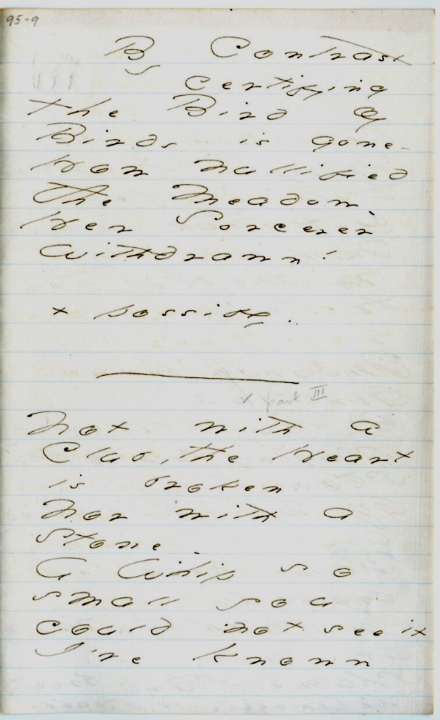 95-9
By Contrast
certifying
The Bird of
Birds is gone -
How nullified
The Meadow -
Her Sorcerer
withdrawn!
+ possibly.
x part III
Not with a
Club, the Heart
is broken
Nor with a
Stone -
A Whip so
small you
could not see it
I've known